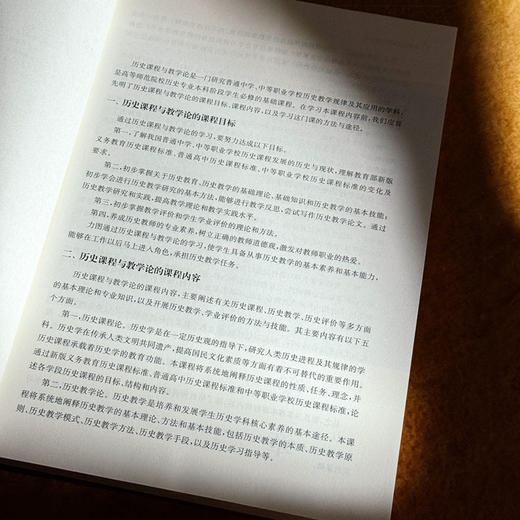 历史课程与教学论是一门研究普通中学、中等职业学校历史教学规律及其应用的学科,
是高等师范院校历史专业本科阶段学生必修的基础课程。在学习本课程内容前,我们应首
先明了历史课程与教学论的课程目标、课程内容,以及学习这门课的方法与途径。
一、历史课程与教学论的课程目标
通过历史课程与教学论的学习,要努力达成以下目标。
第一,了解我国普通中学、中等职业学校历史课程发展的历史与现状,理解教育部新版
义务教育历史课程标准、普通高中历史课程标准、中等职业学校历史课程标准的变化及
要求。
第二,初步掌握关于历史教育、历史教学的基础理论、基础知识和历史教学的基本技能,
初步学会进行历史教学研究的基本方法,能够进行教学反思,尝试写作历史教学论文。通过
历史教学研究和实践,提高教学理论和教学实践水平。
第三,初步掌握教学评价和学生学业评价的理论和方法。
第四,养成历史教师的专业素养,树立正确的教师道德观,激发对教师职业的热爱。
力图通过历史课程与教学论的学习,使学生具备从事历史教学的基本素养和基本能力,
能够在工作以后马上进入角色,承担历史教学任务。
二、历史课程与教学论的课程内容
历史课程与教学论的课程内容,主要阐述有关历史课程、历史教学、历史评价等多方面
的基本理论和专业知识,以及开展历史教学、学业评价的方法与技能。其主要内容有以下五
个方面。
第一,历史课程论。历史学是在一定历史观的指导下,研究人类历史进程及其规律的学
科。历史学在传承人类文明共同遗产,提高国民文化素质等方面有着不可替代的重要作用。
历史课程承载着历史学的教育功能。本课程将系统地阐释历史课程的性质、任务、理念,并
通过新版义务教育历史课程标准、普通高中历史课程标准和中等职业学校历史课程标准,论
述各学段历史课程的目标、结构和内容。
第二,历史教学论。历史教学是培养和发展学生历史学科核心素养的基本途径。本课
程将系统地阐释历史教学的基本理论、方法和基本技能,包括历史教学的本质、历史教学原
则、历史教学模式、历史教学方法、历史教学手段,以及历史学习指导等。